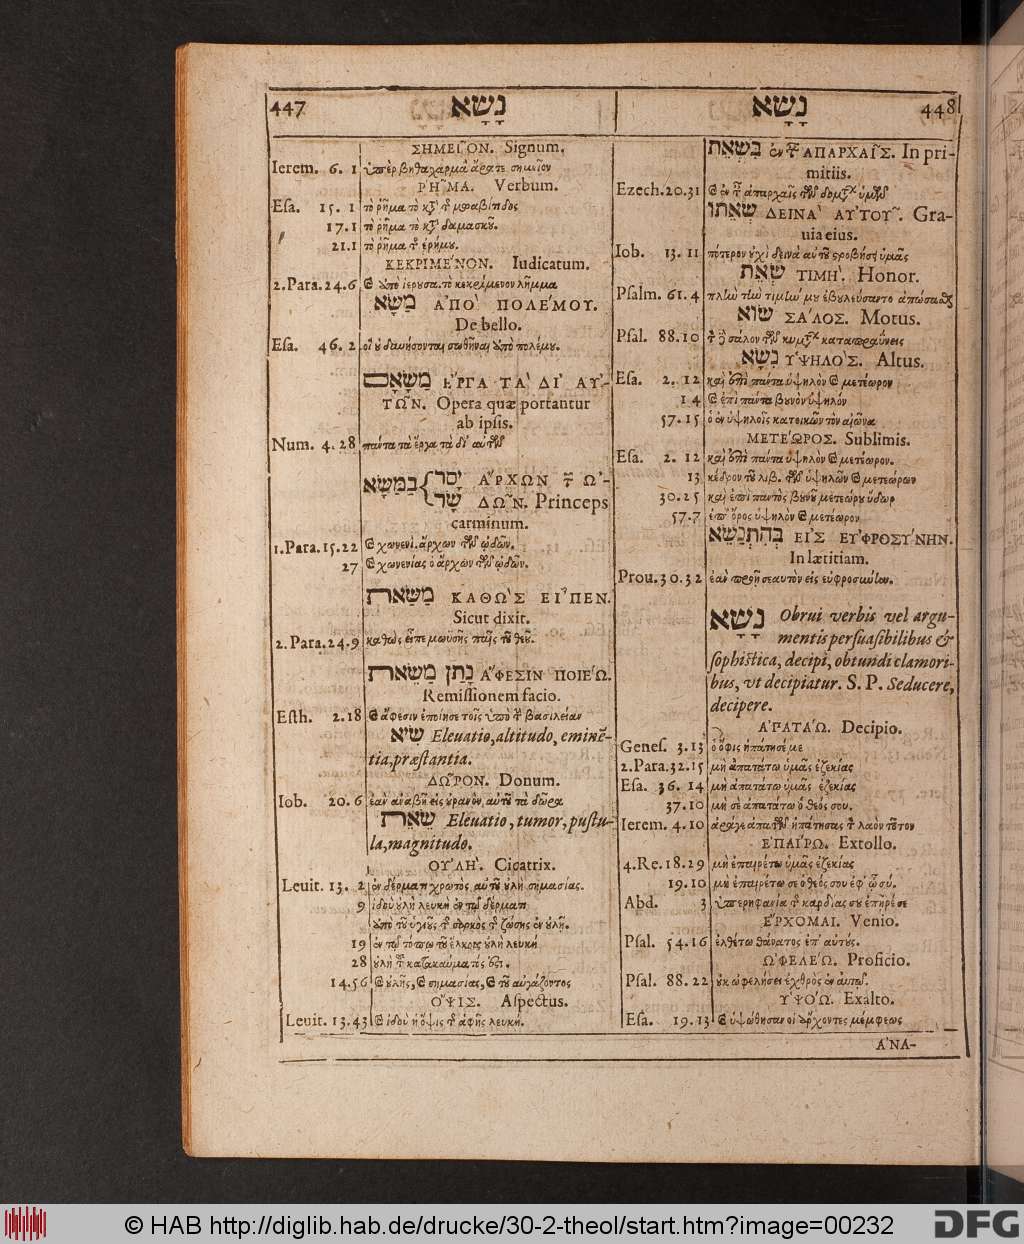 447 נָשָׂא
ΣΗΜΕΙ͂ΟΝ. Signum.
Ierem. 6. 1 ὑπὲρ βηθαχαρμὰ ἄρατε σημεῖον
ΡΗ͂ΜΑ. Verbum.
Esa. 15. 1 τὸ ῥῆμα τὸ κτ̀ τ͂ μωαβίτιδος
17.1 τὸ ῥῆμα τὸ κτ̀ δαμασκοῦ.
21.1 τὸ ῥῆμα τ͂ ἐρήμου.
ΚΕΚΡΙΜΈΝΟΝ. Iudicatum.
2.Para.24.6 ὑπὸ τὸ κεκριμένον λῆμμα
מַשָּׂא ἈΠῸ ΠΟΛΈΜΟΥ.
De bello.
Esa. 46. 2 οἳ οὐ δυνήσονται σωθῆναι ὑπὸ πολέμου.
מַשָּׂאָם ἘΡΓΑ ΤᾺ ΔΙ ΑΥ̓-
ΤΩ͂Ν. Opera quæ portantur
ab ipsis.
Num. 4. 28 πάντα τὰ ἔργα τὰ δι' αὐτῶν
בַמַּשָּׂא { יָסַר ἌΡΧΩΝ Τ͂ Ὠ-
שָׂר ΔΩ͂Ν. Princeps
carminum.
1.Para.15.22 καὶ χωνενί. ἄρχων τῶν ᾠδῶν.
27 καὶ χωνενίας ὁ ἄρχων τῶν ᾠδῶν.
מַשְׂאַת ΚΑΘῺΣ ΕΙ͂̓ΠΕΝ.
Sicut dixit.
2. Para.24.9 καθὼς εἶπε μωυσῆς παῖς τοῦ θεοῦ.
נָתַן מַשְׂאֵת ἌΦΕΣΙΝ ΠΟΙΈΩ.
Remissionem facio.
Esth. 2.18 καὶ ἄφεσιν ἐποίησε τοῖς ὑπὸ τ͂ βασιλείαν
שִׂיא Eleuatio, altitudo, eminẽ-
tia, præstantia.
ΔΩ͂ΡΟΝ. Donum.
Iob. 20. 6 ἐὰν ἀναβῇ εἰς οὐρανὸν, αὐτοῦ τὰ δῶρα
שְׂאֵת Eleuatio, tumor, pustu-
la, magnitudo.
ΟΥ̓ΛΉ. Cicatrix.
Leuit. 13. 2 ἐν δέρματι χρωτὸς αὐτοῦ οὐλὴ σημασίας.
9 ἰδοὺ οὐλὴ λευκὴ ἐν τῷ δέρματι
ὑπὸ τοῦ ὑγιοῦς τ͂ σαρκὸς τ͂ ζώσης ἐν οὐλῇ.
19 ἐν τῷ τόπῳ τοῦ ἕλκους οὐλὴ λευκὴ
28 οὐλὴ τ͂ κατακαύματός ἐστι.
14.56 καὶ οὐλῆς, καὶ σημασίας, καὶ τοῦ αὐγάζοντος
ὌΨΙΣ. Aspectus.
Leuit. 13.43 καὶ ἰδοὺ ἡ ὄψις τ͂ ἁφῆς λευκή.
נָשָׂא 448
בִּשְׂאֵת ἐν τ͂ ἈΠΑΡΧΑΙ͂Σ. In pri-
mitiis.
Ezech.20.31 καὶ ἐν τ͂ ἀπαρχαῖς τῶν δομάτων ὑμῶν
שְׂאֵתוֹ ΔΕΙΝᾺ ΑΥ̓ΤΟΥ͂. Gra-
uia eius.
Iob. 13. 11 πότερον οὐχὶ δεινὰ αὐτοῦ στροβήσει ὑμᾶς
שְׂאֵת ΤΙΜΉ. Honor.
Psalm. 61. 4 πλὴν τὴν τιμήν μου ἐβουλεύσαντο ἀπώσασθαι
שׂוֹא ΣΆΛΟΣ. Motus.
Psal. 88.10 τ͂ σάλον τῶν κυμάτων καταπραΰνεις
נִשָּׂא ὙΨΗΛΌΣ. Altus.
Esa. 2. 12 καὶ ἐπὶ πάντα ὑψηλὸν καὶ μετέωρον
14 καὶ ἐπὶ πάντα βουνὸν ὑψηλὸν
57.15 ὁ ἐν ὑψηλοῖς κατοικῶν τὸν αἰῶνα
ΜΕΤΈΩΡΟΣ. Sublimis.
Esa. 2. 12 καὶ ἐπὶ πάντα ὑψηλὸν καὶ μετέωρον.
13 κέδρον τοῦ λιβ. τῶν ὑψηλῶν καὶ μετεώρων
30.25 καὶ ἐπὶ παντὸς βουνοῦ μετεώρου ὕδωρ
57.7 ἐπ' ὄρος ὑψηλὸν καὶ μετέωρον
בְּהִתְנַשֵּׂא ΕἸΣ ΕΥ̓ΦΡΟΣΎΝΗΝ.
In lætitiam.
Prou.30.32 ἐὰν πρόῃ σεαυτὸν εἰς εὐφροσύνην.
נָשָׁא Obrui verbis vel argu-
mentis persuasibilibus &
sophistica, decipi, obtundi clamori-
bus, vt decipiatur. S. P. Seducere,
decipere.
ἈΠΑΤΆΩ. Decipio.
Genes. 3.13 ὁ ὄφις ἠπάτησέ με
2.Para.32.15 μὴ ἀπατάτω ὑμᾶς ἐζεκίας
Esa. 36. 14 μὴ ἀπατάτω ὑμᾶς ἐζεκίας
37.10 μή σε ἀπατάτω ὁ θεός σου.
Ierem. 4.10 ἆρά γε ἀπατῶν ἠπάτησας τ͂ λαὸν τοῦτον
ἘΠΑΊΡΩ. Extollo.
4.Re.18.29 μὴ ἐπαιρέτω ὑμᾶς ἐζεκίας
19.10 μὴ ἐπαιρέτω σε ὁ θεός σου ἐφ' ᾧ σύ.
Abd. 3 ὑπερηφανία τ͂ καρδίας σου ἐπῆρέ σε
ἜΡΧΟΜΑΙ. Venio.
Psal. 54.16 ἐλθέτω θάνατος ἐπ' αὐτούς.
ὨΦΕΛΈΩ. Proficio.
Psal. 88.22 οὐκ ὠφελήσει ἐχθρὸς ἐν αὐτῷ.
ὙΨΌΩ. Exalto.
Esa. 19.13 καὶ ὑψώθησαν οἱ ἄρχοντες μέμφεως
ἈΝΑ-
© HAB http://diglib.hab.de/drucke/30-2-theol/start.htm?image=00232
DFG